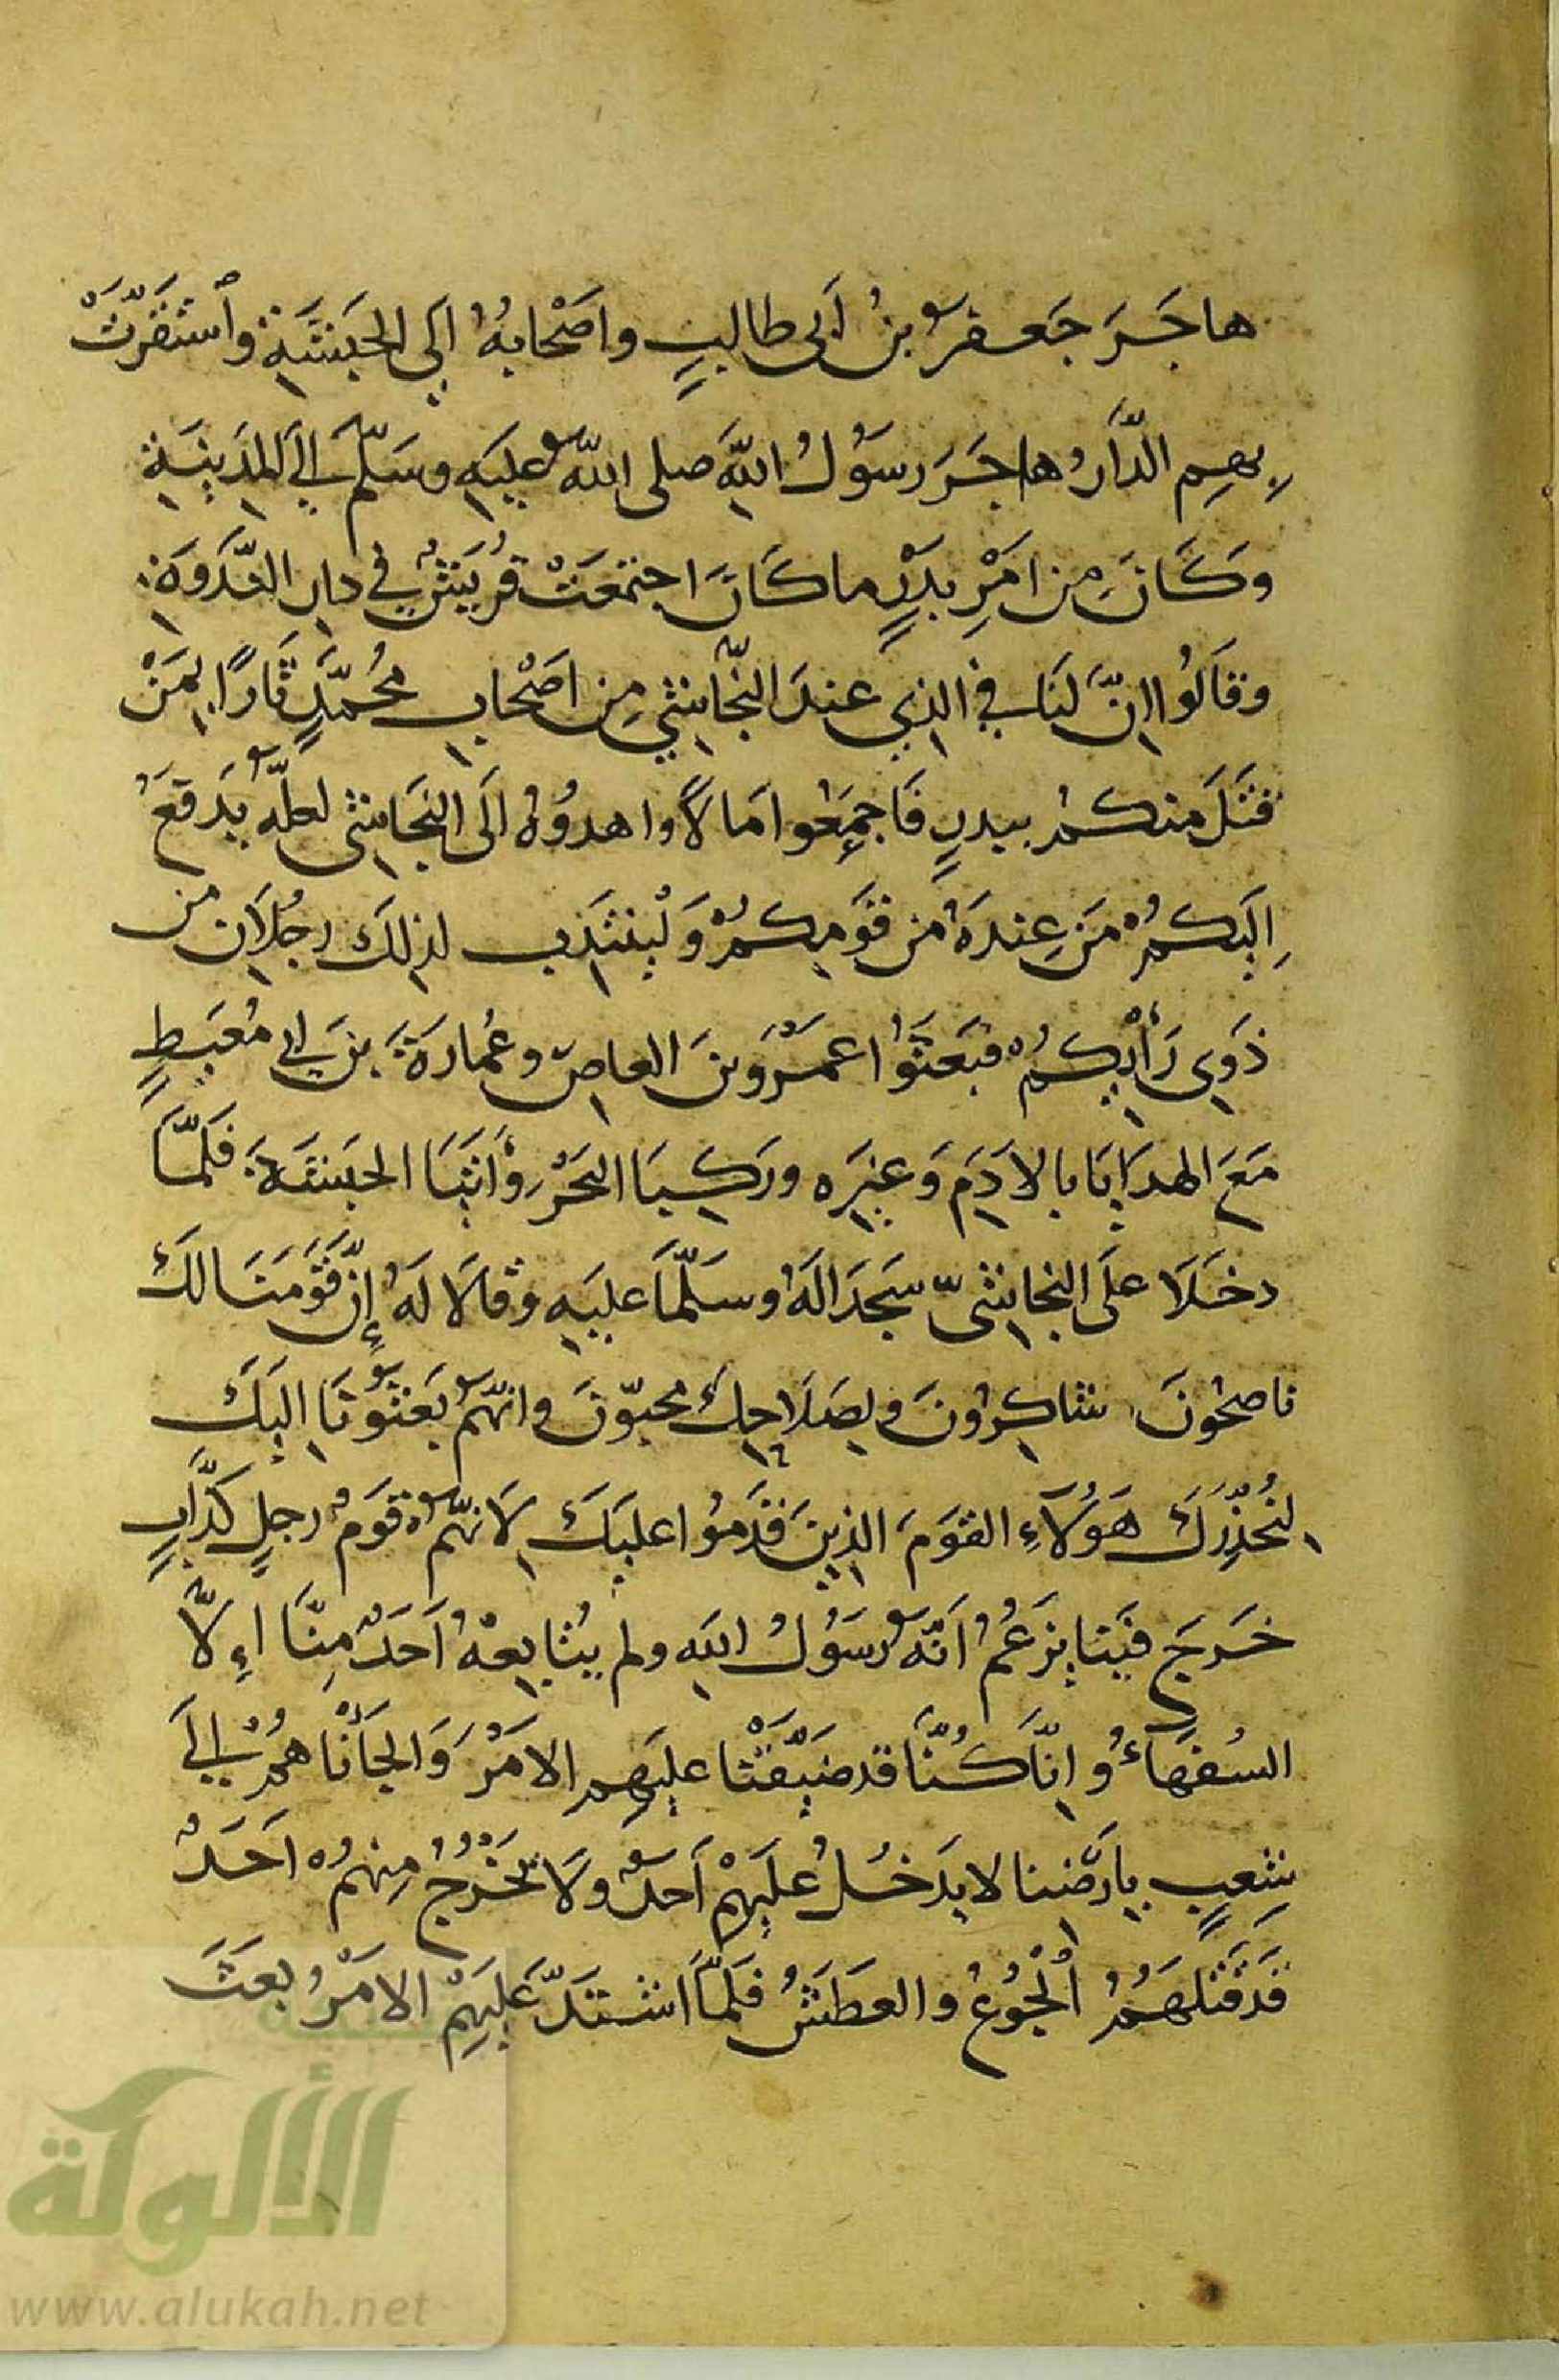 هاجَرَ جَعفرُ بنُ أَبى طالبٍ واَصْحابهُ اِلَي الحَبَشَةِ وٱسْتَقَرَّتْ
بِهِم الدَّارُ وهاجَرَ رسَوُلُ اللّهِ صلى اللّهُ عليَهِ وسَلّمَ اِلَي المَدِينَةِ
وَكَانَ مِن امَرِْ بَدْرٍ ما كَانَ اجتمَعَتْ قُرَيَشٌ في دارِ النَّدْوَةِ
وقاَلُوا اِنّ لَنَا في الذِي عندَ النَّجّاشِيِ مِن اصَْحابِ محُمَّدٍ ثَارًا بِمَنْ
قتَلَ منكم ببدرٍ فَاجمَِعُوا مَالاً واهدوُهُ اِلَى النجَاشِى لعلّهُ يَدفَعُ
اِلَيكمُ مَن عِندَهُ من قَومِكمُ وَليُنتَدَب لذلكَ رجُلاَنِ من
ذَوِي رَأيِكمُ فبَعَثوُا عَمْرَو بنَ العاصِ وعُمارَةَ بنَ أَبي مُعَيطٍ
مَعَ الهدَاياَ بالاَدَمِ وَغيِرَه وركِبَا البَحْرَ وَأتَيَا الحَبشَةَ فلَمّاَ
دخَلَا علَى النجاشِىّ سَجدَا لَهُ وسَلّمَا عليَهِ وقالاَ لَهُ إِنّ قَومَنَا لكَ
ناصحُونَ شاكِرُونَ ولِصَلاَحِكَ محبّونَ وانهّمُ بَعَثوُنَا اِليَكَ
لِنُحَذِّرَكَ هَؤُلآءِ القوَمَ الذِينَ قَدمَوُا عليَكَ لاَنهّمُ قوَمُ رجلٍ كَذَّابٍ
خَرجَ فيَنا يَزعُمُ اَنّهُ رسَوُلُ اللهِ ولم يُتابِعهُ اَحَدٌ مِنّاَ اِلاَّ
السُفهَاءُ واِنّا كنُّا قد ضَيّقْنا عليَهِم الاَمْرَ وَالجَأْناهمُ اِلَي
شِعِبٍ بِارَضْنا لا يدَخُلُ علَيَهِمْ اَحدٌ ولاَ يخَرُجُ مِنهمُ اَحَدٌ
قَد قتَلهَمُ اُلْجُوُعُ والعطَشُ فلَمّا اشتدّ علَيَهِمْ الاَمْرُ بعَثَ
الألوكة
www.alukah.net